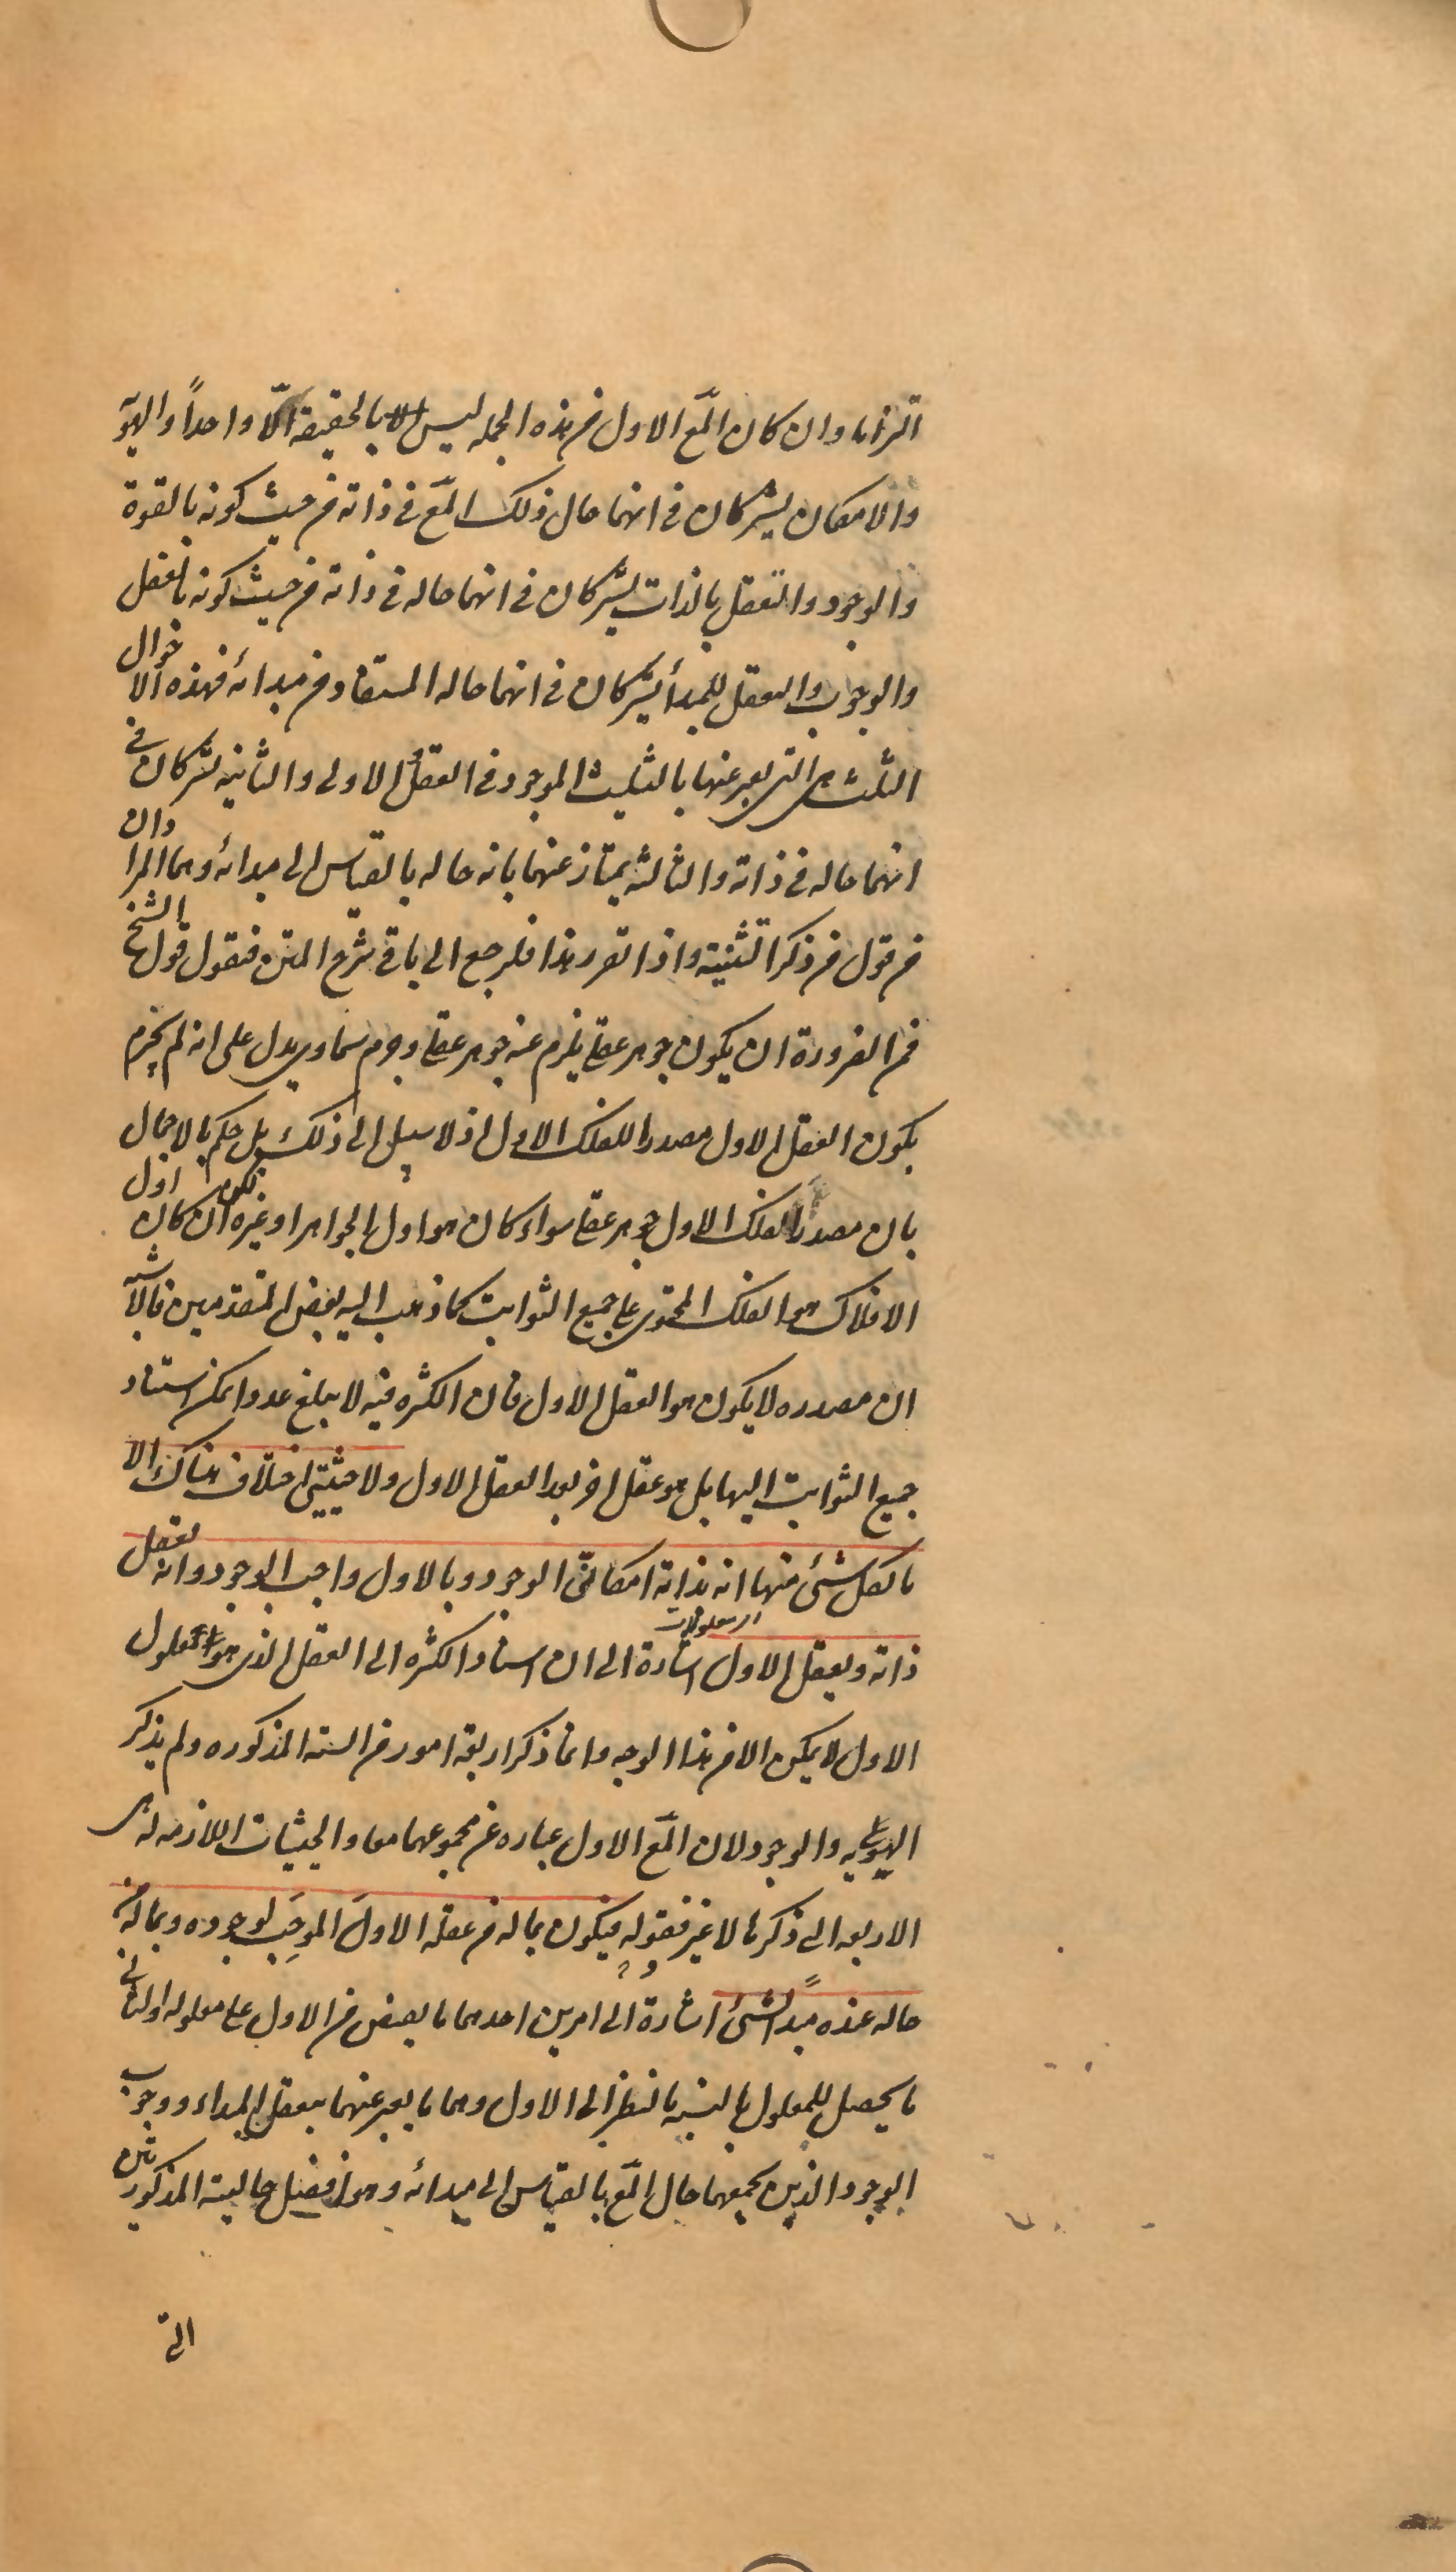 التزاما وان كان المع الاول من هذه الجمله ليس الا بالحقيقة الا واحداً والهيو
والامكان يشتركان فى انهما حال ذلك المع فى ذاته من حيث كونه بالقوة
والوجود والتعقل بالذات يشتركان فى انهما حاله فى ذاته من حيث كونه بالفعل
والوجوب والتعقل للمبدأ يشتركان فى انهما حاله المستفاد من مبدائه فهذه الاحوال
الثلث هى التى يعبر عنها بالتثليث الموجود فى العقل الاولى والثانيه تشتركان فى
انهما حاله فى ذاته والثالثه يمتاز عنهما بانه حاله بالقياس الى مبدائه وهما المرادان
من قول من ذكر التثنية واذا تقرر هذا فلنرجع الى باقى شرح المتن فنقول قول الشيخ
فمن الضرورة ان يكون جوهر عقلى يلزم عنه جوهر عقلى وجرم سماوى يدل على انه لم يجزم
بكون العقل الاول مصدرا للفلك الاول اذ لا سبيل الى ذلك بل حكم بالاجمال
بان مصدر الفلك الاول جوهر عقلى سواء كان هو اول الجواهر او غيره ان كان اول
الافلاك هو الفلك المحتوى على جميع الثوابت كما ذهب اليه بعض المتقدمين فالاشبه
ان مصدره لا يكون هو العقل الاول فان الكثره فيه لا يبلغ عددا يمكن استناد
جميع الثوابت اليها بل هو عقل اخر بعد العقل الاول ولا حيثيتى اختلاف هناك الا
ما لكل شئ منها انه بذاته امكانى الوجود وبالاول واجب الوجود وانه يعقل
ذاته ويعقل الاول اشارة الى ان اسناد الكثره الى العقل الذى هو المعلول
الاول لا يمكن الا من هذا الوجه وانما ذكر اربعة امور من السته المذكوره ولم يذكر
الهيويه والوجود لان المع الاول عباره عن مجموعهما معا والحيثيات اللازمه له هى
الاربعه التى ذكرها لا غير فقوله فيكون بما له من عقله الاول الموجب لوجوده وبما له من
حاله عنده مبدأ لشئ اشارة الى امرين احدهما ما يفيض من الاول على معلوله والثانى
ما يحصل للمعلول بالنسبه بالنظر الى الاول وهما ما يعبر عنهما بتعقل المبداء ووجوب
الوجود الذين يجمعهما حال المع بالقياس الى مبدائه وهو افضل حاليته المذكورتين
التى